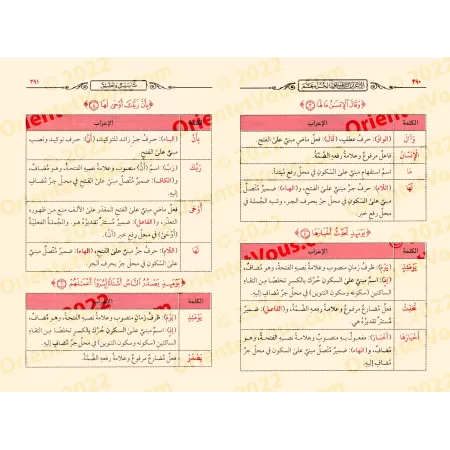 ٣٩٠
﴿وَقَالَ الْإِنسَٰنُ مَا لَهَا ٣﴾
الكلمة
الإعراب
وَقَالَ
(الواو): حرفُ عطفٍ، (قَالَ): فعلٌ ماضٍ مبنيٌّ على الفتحِ.
الْإِنسَٰنُ
فاعلٌ مرفوعٌ وعلامةُ رفعِهِ الضَّمَّةُ.
مَا
اسمُ استفهامٍ مبنيٌّ على السكونِ في محلِّ رفعِ مبتدأ.
لَهَا
(اللَّام): حرفُ جرٍّ مبنيٌّ على الفتحِ، و(الهاء): ضميرٌ متَّصلٌ
مبنيٌّ على السكونِ في محلِّ جرٍّ بحرف الجر، وشبه الجملة في
محلِّ رفعِ خبرٍ.
﴿يَوْمَئِذٍ تُحَدِّثُ أَخْبَارَهَا ٤﴾
الكلمة
الإعراب
يَوْمَئِذٍ
(يَوْمَ): ظرفُ زمانٍ منصوبٌ وعلامةُ نصبِهِ الفتحةُ، وهو مُضافٌ،
(إِذٍ): اسمٌ مبنيٌّ على السكونِ حُرِّكَ بالكسرِ تخلُّصًا مِن التقاءِ
الساكنين (سكونه وسكون التنوين) في محلِّ جرِّ مُضافٍ إليه.
تُحَدِّثُ
فعلٌ مُضارعٌ مرفوعٌ وعلامةُ رفعِهِ الضَّمَّةُ، و(الفاعل): ضميرٌ
مُستترٌ تقديرُهُ هي.
أَخْبَارَهَا
(أَخْبَارَ): مفعولٌ به منصوبٌ وعلامةُ نصبِهِ الفتحةُ، وهو
مُضافٌ، و(الهاء): ضميرٌ متَّصلٌ مبنيٌّ على السكونِ في محلِّ جرِّ
مُضافٍ إليه.
٣٩١
﴿بِأَنَّ رَبَّكَ أَوْحَىٰ لَهَا ٥﴾
الكلمة
الإعراب
بِأَنَّ
(الباء): حرفُ جرٍّ، (أَنَّ): حرفُ توكيدٍ ونصبٍ
مبنيٌّ على الفتحِ.
رَبَّكَ
(رَبَّ): اسمُ (أَنَّ) منصوبٌ وعلامةُ نصبِهِ الفتحةُ، وهو مُضافٌ،
و(الكاف): ضميرٌ متَّصلٌ مبنيٌّ على الفتحِ في محلِّ جرِّ مُضافٍ
إليه.
أَوْحَىٰ
فعلٌ ماضٍ مبنيٌّ على الفتحِ المقدَّرِ على الألفِ منع من ظهوره
التعذر، و(الفاعل): ضميرٌ مُستترٌ تقديرُهُ هو، والجملةُ الفعليَّةُ
(أَوْحَىٰ) في محلِّ رفعِ خبرِ (أَنَّ).
لَهَا
(اللَّام): حرفُ جرٍّ مبنيٌّ على الفتحِ، (الهاء): ضميرٌ متَّصلٌ
مبنيٌّ على السكونِ في محلِّ جرٍّ بحرف الجر.
﴿يَوْمَئِذٍ يَصْدُرُ النَّاسُ أَشْتَاتًا لِّيُرَوْا أَعْمَٰلَهُمْ ٦﴾
الكلمة
الإعراب
يَوْمَئِذٍ
(يَوْمَ): ظرفُ زمانٍ منصوبٌ وعلامةُ نصبِهِ الفتحةُ، وهو مُضافٌ،
(إِذٍ): اسمٌ مبنيٌّ على السكونِ حُرِّكَ بالكسرِ تخلُّصًا مِن التقاءِ
الساكنين (سكونه وسكون التنوين) في محلِّ جرِّ مُضافٍ إليه.
يَصْدُرُ
فعلٌ مُضارعٌ مرفوعٌ وعلامةُ رفعِهِ الضَّمَّةُ.